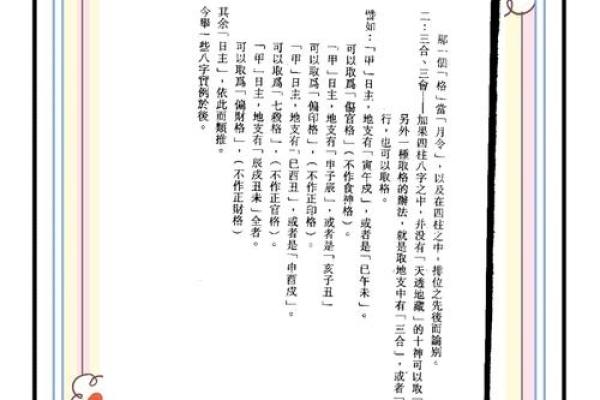 那一個「格」當「月令」，以及在四柱之中，排位之先後而論別。
二：三合、三會——如果四柱八字之中，并没有「天透地藏」的十神可以取「
另外一種取格的辦法，就是取地支中有「三合」，或者「
行，也可以取格。
譬如：「甲」日主，地支有「寅午戌」，或者是「巳午未」。
可以取爲「傷官格」（不作食神格）。
「甲」日主，地支有「申子辰」，或者是「亥子丑」
可以取爲「偏印格」，（不作正印格）。
「甲」日主，地支有「巳酉丑」，或者是「申酉戌」。
可以取爲「七殺格」，（不作正官格）。
「甲」日主，地支有「辰戌丑未」全者。
可以取爲「偏財格」，（不作正財格）
其余「日主」，依此而類推。
今舉一些八字實例於後。